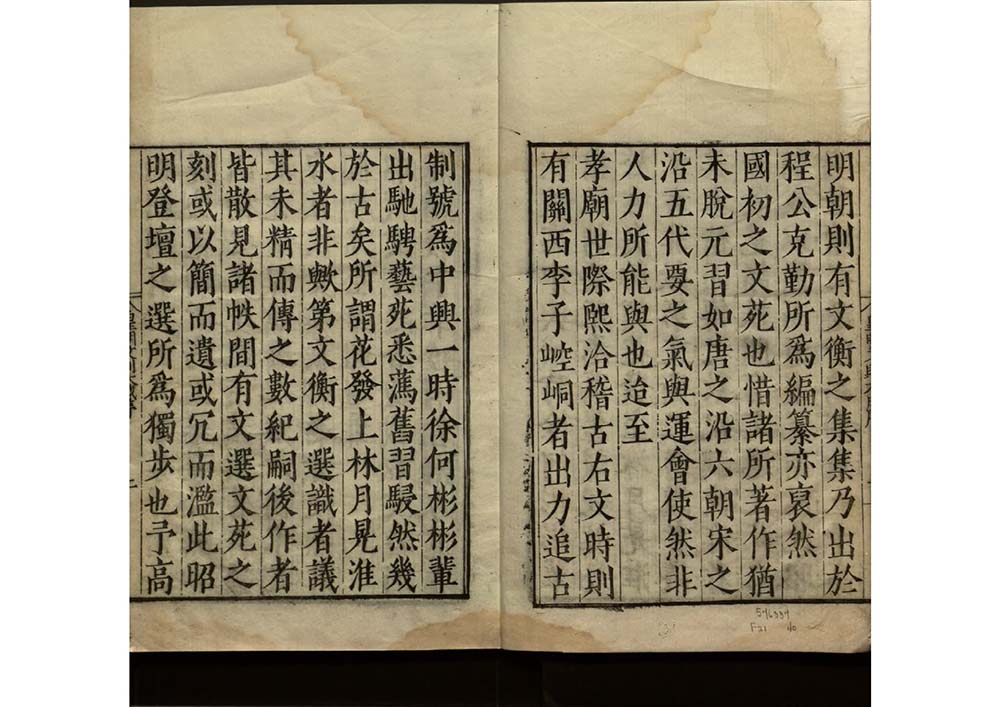 明朝則有文衡之集集乃出於
程公克勤所爲編纂亦裒然
國初之文苑也惜諸所著作猶
未脫元習如唐之沿六朝宋之
沿五代要之氣與運會使然非
人力所能與也迨至
孝廟世際熙洽稽古右文時則
有關西李子崆峒者出力追古
制號爲中興一時徐何彬彬輩
出馳騁藝苑悉蕩舊習駸然幾
於古矣所謂花發上林月晃淮
水者非歟第文衡之選識者議
其未精而傳之數紀嗣後作者
皆散見諸帙間有文選文苑之
刻或以簡而遺或冗而濫此昭
明登壇之選所爲獨步也予高
546334
F21